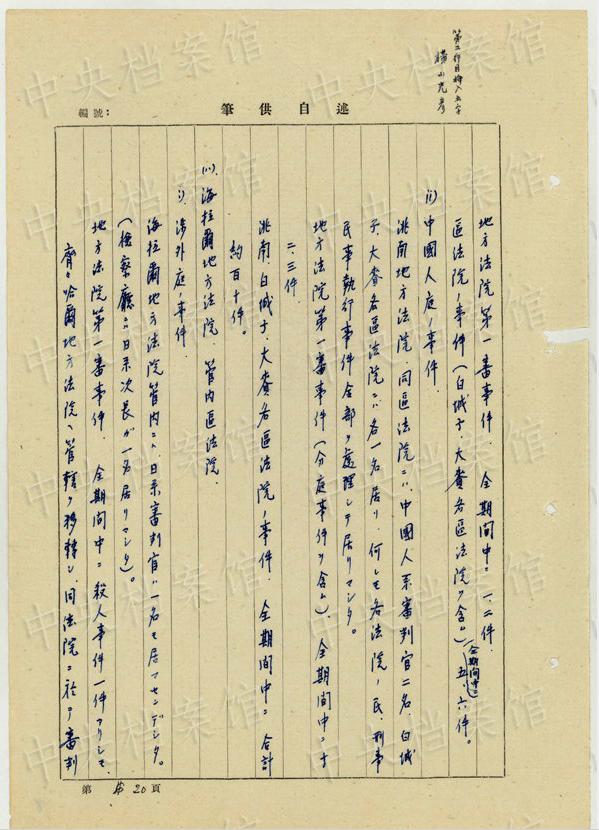 第二行目挿入五字
横山光彦
編號：
筆供自述
地方法院第一審事件、全期間中ニ一、二件。
区法院ノ事件（白城子、大賚各区法院ヲ含ム）（全期間中ニ）五、六件。
(ii) 中國人庭ノ事件。
洮南地方法院、同区法院ニハ、中國人系審判官二名、白城
子、大賚各区法院ニハ各一名居リ、何レモ各法院ノ民、刑事
民事執行事件全部ヲ處理シテ居リマシタ。
地方法院第一審事件（分庭事件ヲ含ム）、全期間中ニ十
二、三件。
洮南、白城子、大賚各区法院ノ事件、全期間中ニ合計
約百十件。
海拉爾地方法院、管内区法院。
i)、渉外庭ノ事件。
海拉爾地方法院管内ニハ、日系審判官ハ一名モ居マセンデシタ。
（検察廳ニハ日系次長ガ一名居リマシタ）。
地方法院第一審事件、全期間中ニ殺人事件一件アリシモ、
齊々哈爾地方法院ヘ管轄ヲ移轉シ、同法院ニ於テ審判
第 20 頁
中央档案馆